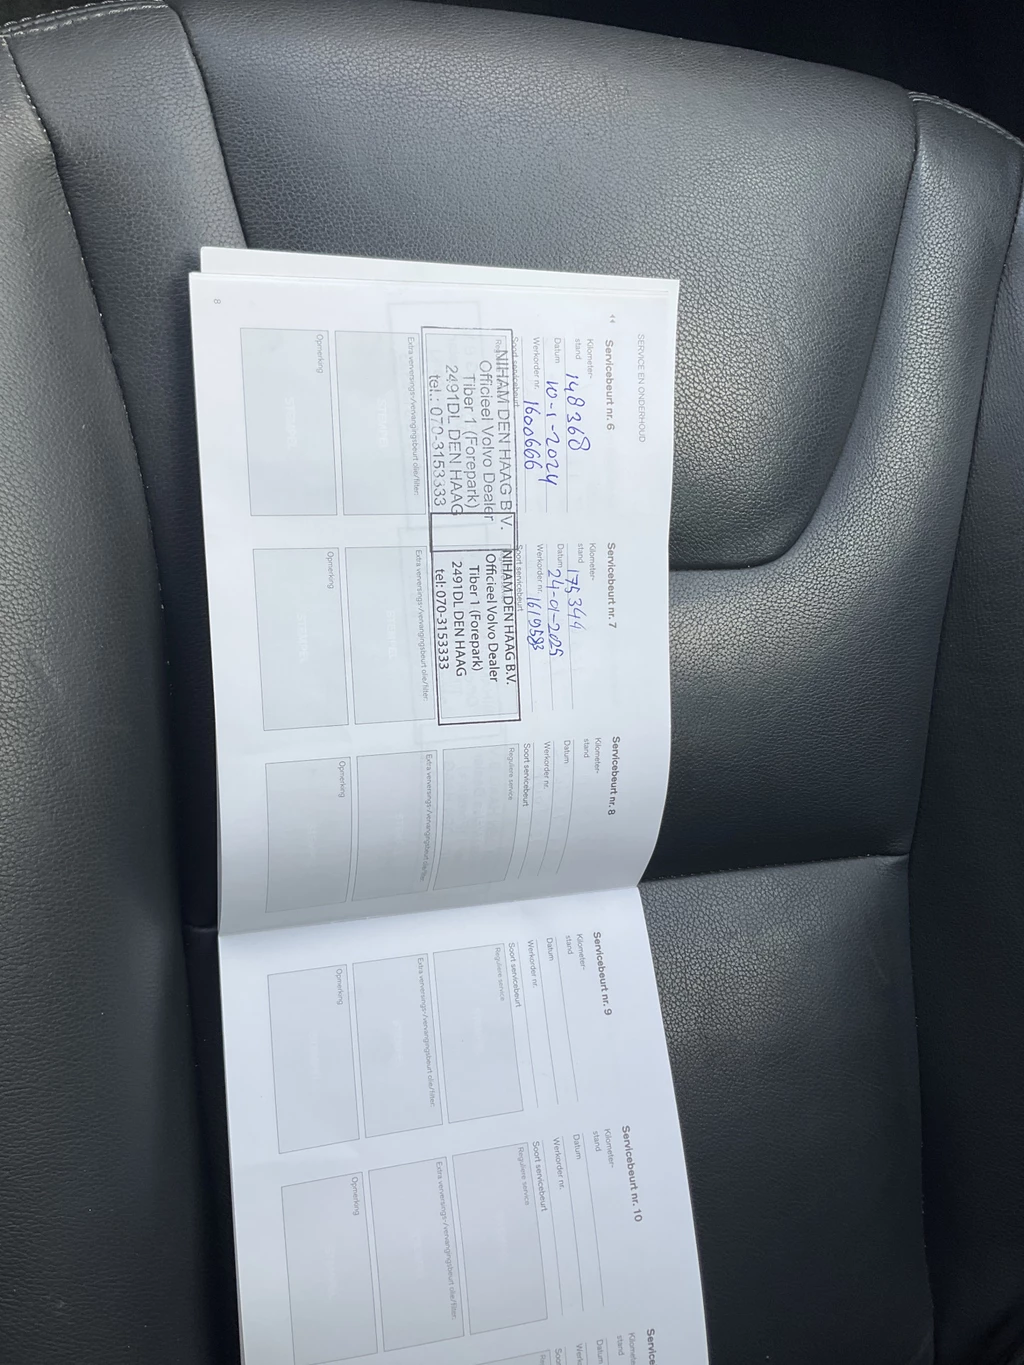 SERVICE EN ONDERHOUD
Servicebeurt nr. 6
Kilometer-
stand 148368
Datum 10-1-2024
Werkorder nr. 1600666
Soort servicebeurt
NIHAM DEN HAAG B.V.
Officieel Volvo Dealer
Tiber 1 (Forepark)
2491DL DEN HAAG
tel.: 070-3153333
Extra verversings-/vervangingsbeurt olie/filter:
Opmerking
8
Servicebeurt nr. 7
Kilometer-
stand 175344
Datum 24-01-2025
Werkorder nr. 1619583
Soort servicebeurt
NIHAM DEN HAAG B.V.
Officieel Volvo Dealer
Tiber 1 (Forepark)
2491DL DEN HAAG
tel: 070-3153333
Extra verversings-/vervangingsbeurt olie/filter:
Opmerking
Servicebeurt nr. 8
Kilometer-
stand
Datum
Werkorder nr.
Soort servicebeurt
Reguliere service
Extra verversings-/vervangingsbeurt olie/filter:
Opmerking
Servicebeurt nr. 9
Kilometer-
stand
Datum
Werkorder nr.
Soort servicebeurt
Reguliere service
Extra verversings-/vervangingsbeurt olie/filter:
Opmerking
Servicebeurt nr. 10
Kilometer-
stand
Datum
Werkorder nr.
Soort servicebeurt
Reguliere service
Extra verversings-/vervangingsbeurt olie/filter:
Opmerking
Service
Kilomete
stand
Datum
Werk
Soor